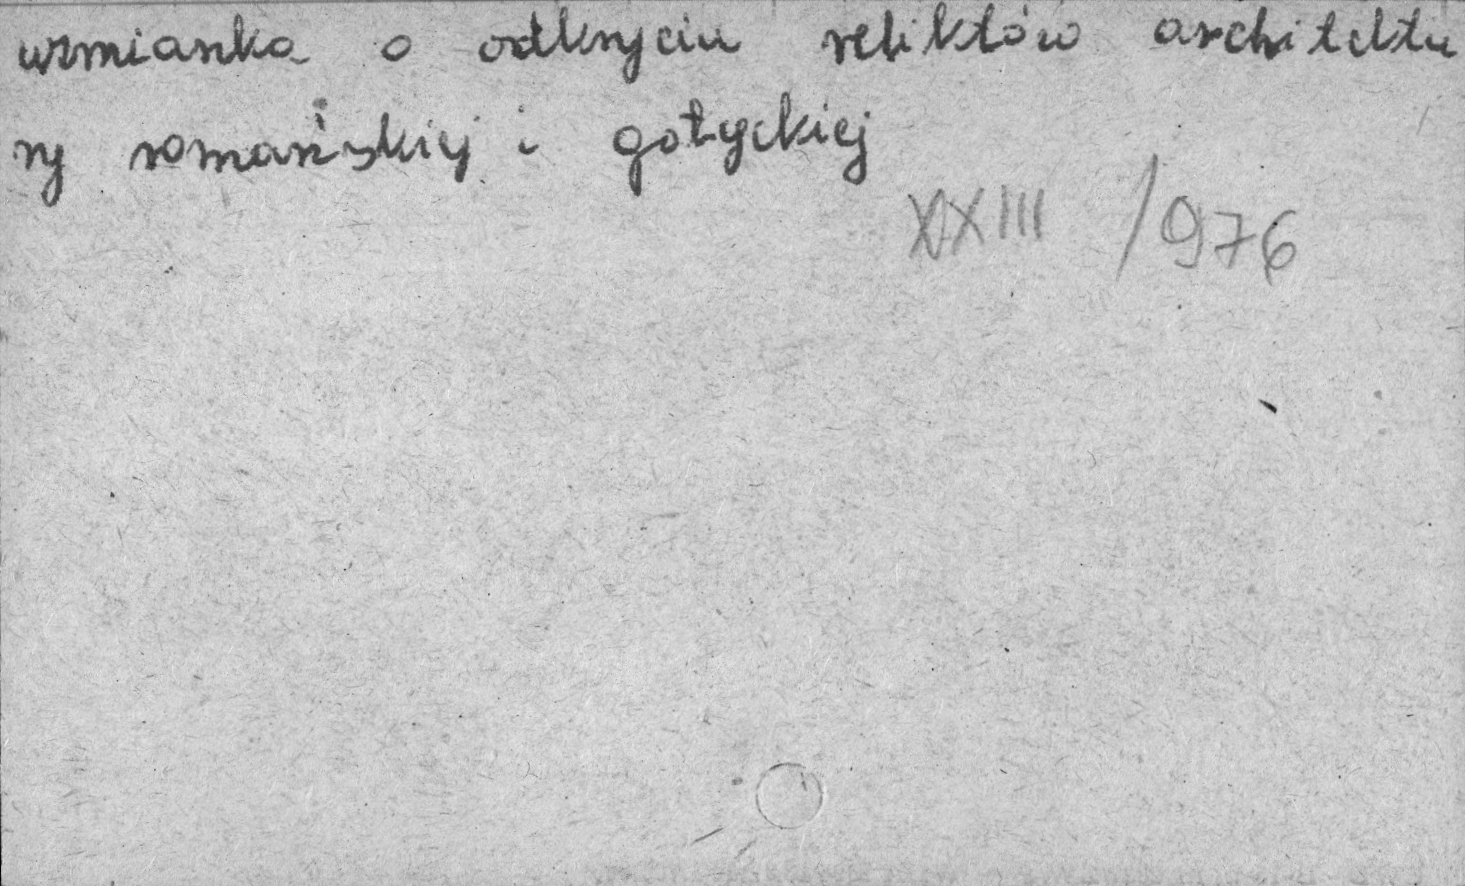 wzmianka o odkryciu reliktów architektu
ry romańskiej i gotyckiej
XXIII /976